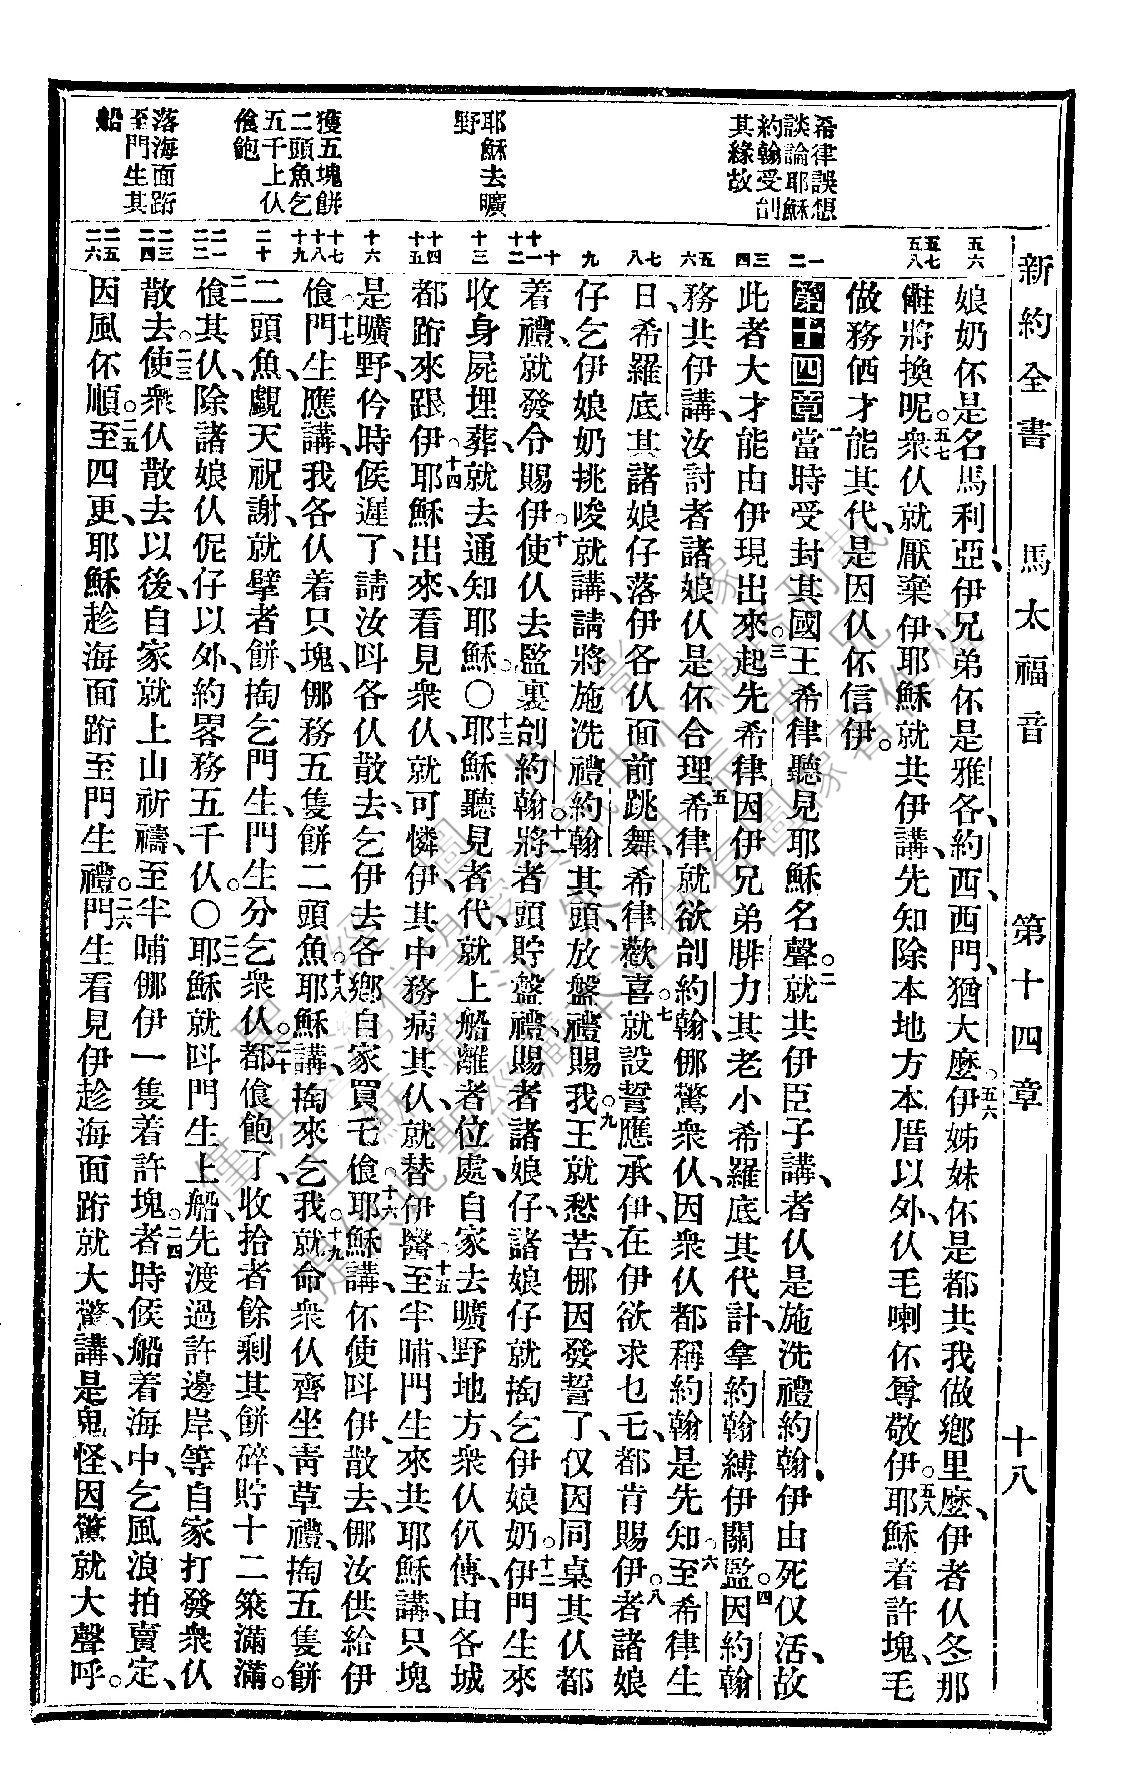 新約全書 馬太福音 第十四章 十八
希律誤想
談論耶穌
約翰受刣
其緣故
耶穌去曠
野
獲五塊餅
二頭魚乞
五千上仈
飽
落海面跴
至門生其
船
娘奶伓是名馬利亞、伊兄弟伓是雅各、約西、西門、猶大麽。五六伊姊妹伓是都共我做鄉里麽、伊者仈冬那
將換呢。五七衆仈就厭棄伊、耶穌就共伊講、先知除本地方本厝以外、仈毛喇伓尊敬伊。五八耶穌着許塊、毛
做務俹才能其代、是因仈伓信伊。
第十四章一當時受封其國王希律聽見耶穌名聲。二就共伊臣子講、者仈是施洗禮約翰、伊由死仅活、故
此者大才能由伊現出來。三起先希律因伊兄弟腓力其老小希羅底其代計、拿約翰縛伊關監。四因約翰
務共伊講、汝討者諸娘仈是伓合理。五希律就欲刣約翰、㑚驚衆仈、因衆仈都稱約翰是先知。六至希律生
日、希羅底其諸娘仔落伊各仈面前跳舞、希律歡喜。七就設誓應承伊、在伊欲求乜乇、都肯賜伊。八者諸娘
仔乞伊娘奶挑唆就講、請將施洗禮約翰其頭、放盤禮賜我。九王就愁苦、㑚因發誓了、仅因同桌其仈都
着禮、就發令賜伊。十使仈去監裏刣約翰。十一將者頭貯盤禮、賜者諸娘仔、諸娘仔就掏乞伊娘奶。十二伊門生來
收身屍埋葬、就去通知耶穌。〇十三耶穌聽見者代、就上船離者位處、自家去曠野地方、衆仈仈傳、由各城
都跴來跟伊。十四耶穌出來看見衆仈、就可憐伊、其中務病其仈、就替伊醫。十五至半晡、門生來共耶穌講、只塊
是曠野、仱時候遲了、請汝呌各仈散去、乞伊去各鄉、自家買乇。十六耶穌講、伓使呌伊散去、㑚汝供給伊
。十七門生應講、我各仈着只塊、㑚務五隻餅二頭魚。十八耶穌講、掏來乞我。十九就命衆仈齊坐靑草禮、掏五隻餅
二頭魚、覷天祝謝、就擘者餅、掏乞門生、門生分乞衆仈。二十都飽了、收拾者餘剩其餅碎、貯十二䈄滿滿。
二一其仈、除諸娘仈伲仔以外、約畧務五千仈。〇二二耶穌就呌門生上船、先渡過許邊岸、等自家打發衆仈
散去。二三使衆仈散去以後、自家就上山祈禱、至半晡㑚伊一隻着許塊。二四者時候船着海中、乞風浪拍賣定、
因風伓順。二五至四更、耶穌趁海面跴至門生禮。二六門生看見伊趁海面跴、就大驚講、是鬼怪、因驚就大聲呼。